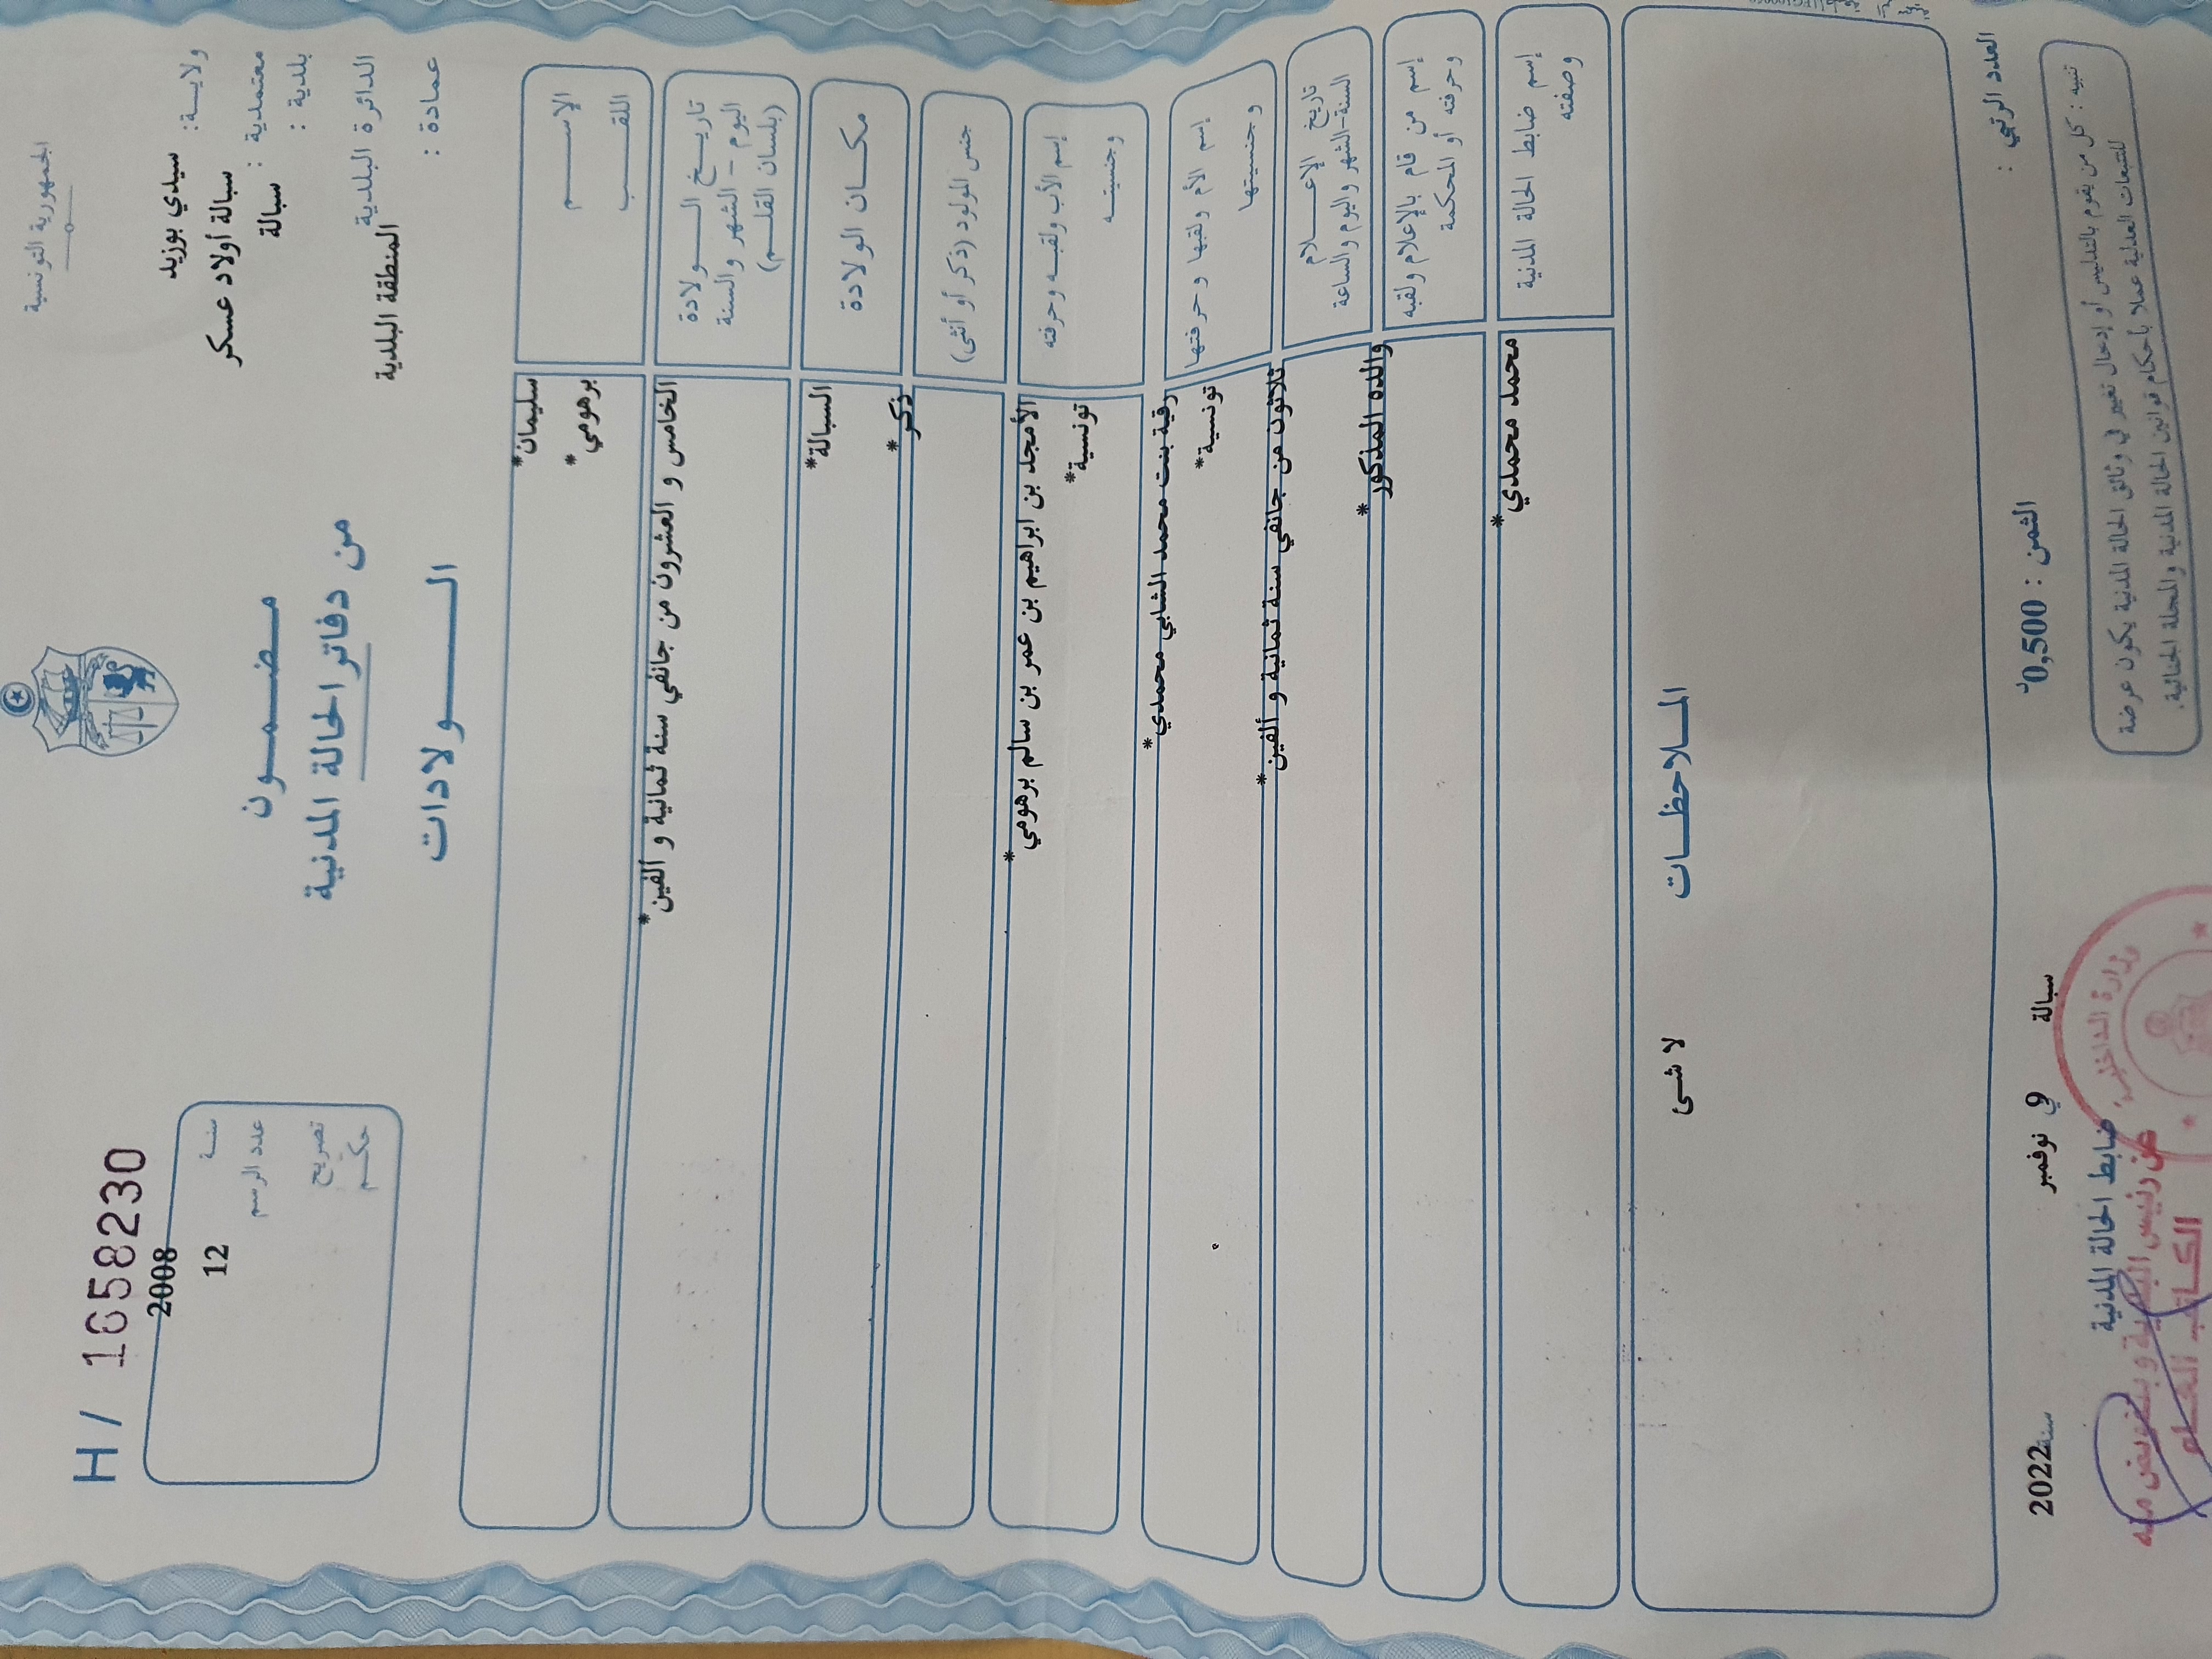 الجمهورية التونسية
H/ 1658230
ولايــة: سيدي بوزيد
معتمدية : سبالة أولاد عسكر
بلدية : سبالة
الدائرة البلدية
المنطقة البلدية
عمادة :
سنة 2008
عدد الرسم 12
تصريح
حكم
مضمون
من دفاتر الحالة المدنية
الولادات
الإسم سليمان*
اللقب برهومي*
تاريخ الولادة الخامس و العشرون من جانفي سنة ثمانية و ألفين*
اليوم - الشهر والسنة
(بلسان القلم)
مكان الولادة السبالة*
جنس المولود (ذكر أو أنثى) ذكر*
إسم الأب ولقبه وحرفته الأمجد بن ابراهيم بن عمر بن سالم برهومي*
وجنسيته تونسية*
إسم الأم ولقبها وحرفتها رقية بنت محمد الشابي محمدي*
وجنسيتها تونسية*
تاريخ الإعلام ثلاثون من جانفي سنة ثمانية و ألفين*
السنة-الشهر واليوم والساعة
إسم من قام بالإعلام ولقبه والده المذكور*
وحرفته أو المحكمة
إسم ضابط الحالة المدنية محمد محمدي*
وصفته
الملاحظات
لا شى
العدد الرتبي :
الثمن : 0,500د
سبالة في 9 نوفمبر سنة 2022
تنبيه : كل من يقوم بالتدليس أو إدخال تغيير في وثائق الحالة المدنية يكون عرضة
للتتبعات العدلية عملا بأحكام قوانين الحالة المدنية والمجلة الجنائية.
ضابط الحالة المدنية
وزارة الداخلية
عن رئيس البلدية و بتفويض منه
الكاتب العام